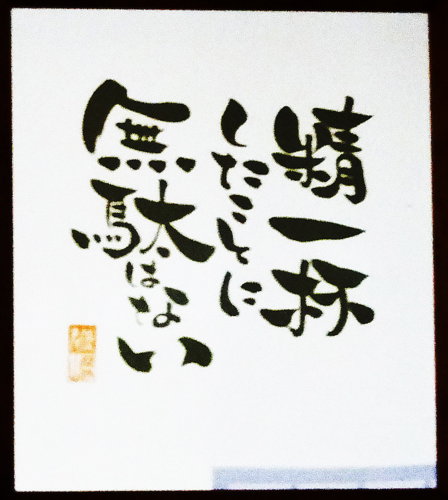 精一杯
したことに
無駄はない